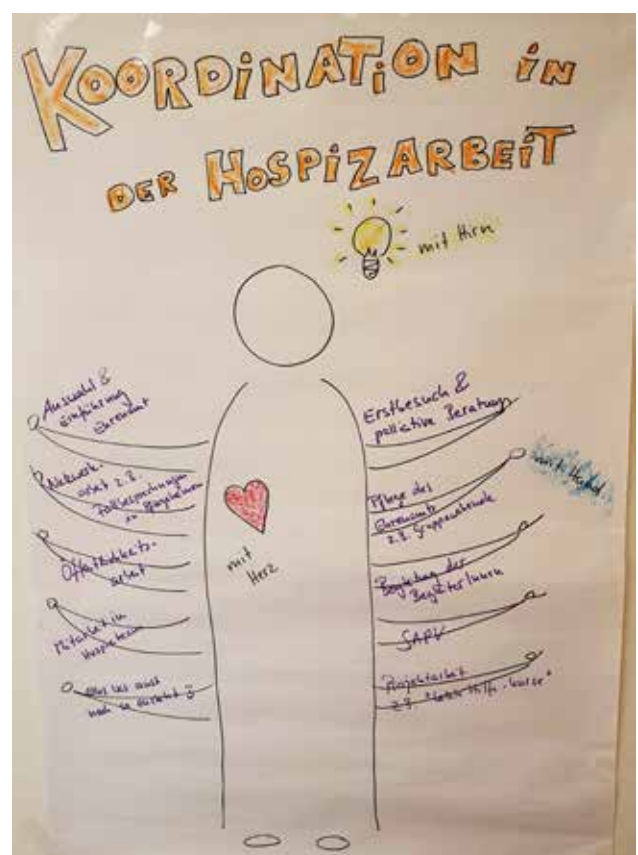 KOORDINATION IN
DER HOSPIZARBEIT
mit Hirn
Auswahl &
Einführung
Ehrenamt
Netzwerk-
arbeit z.B.
Fallbesprechungen
in Pflegeheimen
Öffentlichkeits-
arbeit
Mitarbeit im
Hospizteam
Alles was sonst
noch so
mit
Herz
Erstbesuch &
palliative Beratung
mit Hand
Pflege des
Ehrenamts
z.B. Gruppenabende
Begleitung der
BegleiterInnen
SAPV
Projektarbeit
z.B. "Letzte Hilfe-Kurse"